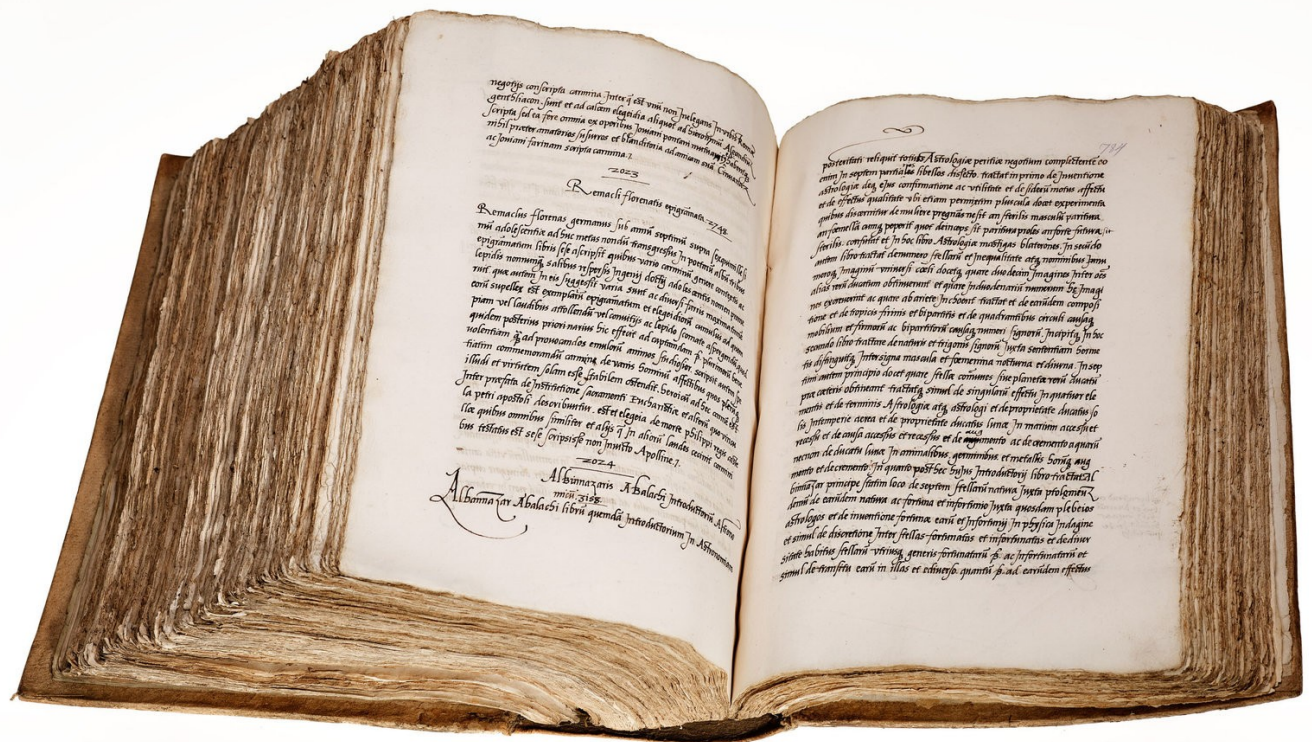 negotijs conscripta carmina. Inter q̄ est vnū non Inelegans In vrbis
genethliacon. sunt et ad calcem elegidia aliquot ad hieronimū
scripta sed ea fere omnia ex operibus Joviani pontani
nihil præter amatorios susurros et blanditoria ad amiam suā
ac Joviani farinam scripta carmina.
2023
Remacli florenatis epigramata. 2742
Remaclus florenas germanus sub annū septimū supra
adolescentiæ ad huc metas nondū transgressus In poetarū albū tribus
epigramatum libris sese ascripsit quibus vario carminū genere contextis ac
lepidis nonnunq̄ salibus respersis Ingenij docti adolescentis nomen
ruit quæ autem In eis suggessit varia sunt ac diversi Juris maxima
eorū supellex est exemplarū epigramatum et elegidiorū cumulus ad
vel laudibus attollendū vel convitijs ac lepido scomate
quidem posterius priori narius hic effecit ad captandam
volentiam q̄ ad provocandos emulorū animos studiosior. scripsit autem
commemorandū carmine de vanis hominū affectibus quos
illudi et virtutem solam esse stabilem ostendit. heroicū ad hæc carmē est.
Inter præfata de Institutione sacramenti Eucharistiæ et alterū quo
petri apostoli describuntur. est et elegeia de morte philippi regis
quibus omnibus similiter et alijs q̄ In aliorū laudes cecinit
testatus est sese scripsisse non Invito Apolline.
2024
Albumazaris Abalachi Introductoriū
3158
Albumazar Abalachi librū quendā Introductorium In Astronomiam
734
posteritati reliquit totius Astrologiæ peritiæ negotium complectentē
enim In septem partiales libellos dissecto. tractat in primo de Inventione
astrologiæ deq̄ ejus confirmatione ac vtilitate et de siderū motus affectu
et de effectus qualitate vbi etiam permixtim pluscula docet experimenta
quibus discernitur de muliere pregnāte sit an sterilis masculū paritura
an fœmellā cunq̄ peperit quot deinceps sit paritura proles an forte futura
sterilis. confutat et In hoc libro Astrologiæ mastigas blaterones. In secūdo
autem libro tractat de numero stellarū et Inequalitate atq̄ nominibus
Imaginū vniversi cœli docetq̄ quare duodecim Imagines Inter
alias rerū ducatum obtinuerunt et quare Induodenariū numerum hę Imagi
nes excreverint ac quare ab ariete Inchoent tractat et de earūdem composi
tione et de tropicis firmis et bipartitis et de quadrantibus circuli causaq̄
mobilium et firmorū ac bipartitorū causaq̄ numeri signorū. Incipitq̄ In hoc
secundo libro tractare de naturis et trigonis signorū Juxta sententiam
distinguitq̄ Inter signa mascula et fœmenina notturna et diurna. In
autem principio docet quare stellæ comunes sive planetæ rerū ducatū
præ cæteris obtineant tractatq̄ simul de singularū effectu In quatuor ele
mentis et de terminis Astrologiæ atq̄ astrologi et de proprietate ducatus so
lis Intemperie aerea et de proprietate ducatus lunæ In marium accessu et
recessu et de causa accessus et recessus et de augmento ac decremento aquarū
necnon de ducatu lunæ In animalibus, germinibus, et metallis horūq̄ aug
mento et decremento. In quarto post hæc hujus Introductorij libro tractat Al
bumazar principe statim loco de septem stellarū natura Juxta ptolemeū
demū de earūdem natura ac fortuna et infortunio Juxta quosdam plebeios
astrologos et de inventione fortunæ earū et Infortunij In physica Indagine
et simul de discretione Inter stellas fortunatas et infortunatas et de diver
sitate habitus stellarū vtriusq̄ generis fortunatarū ac Infortunatarū et
simul de transitu earū in illas et ediverso. quantū ad earūdem effectus